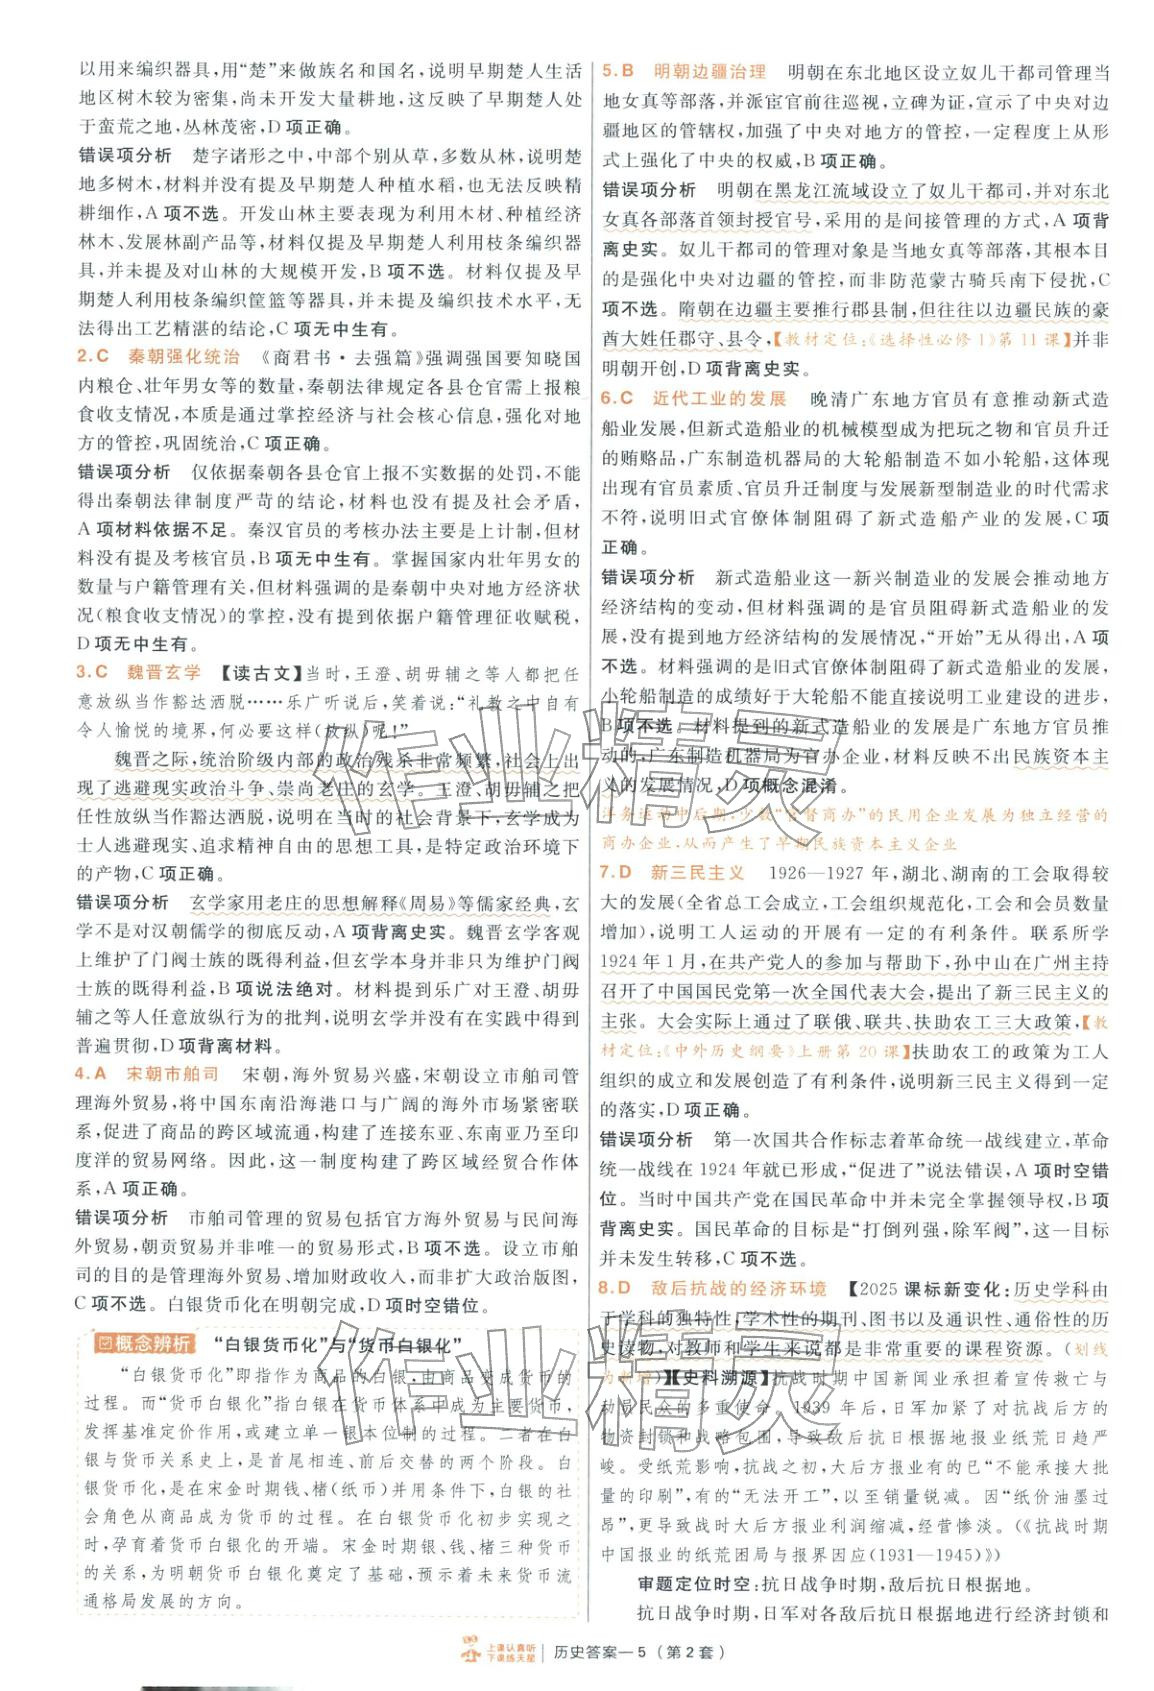 以用来编织器具,用“楚”来做族名和国名,说明早期楚人生活
地区树木较为密集,尚未开发大量耕地,这反映了早期楚人处
于蛮荒之地,丛林茂密,D项正确。
错误项分析 楚字诸形之中,中部个别从草,多数从林,说明楚
地多树木,材料并没有提及早期楚人种植水稻,也无法反映精
耕细作,A项不选。开发山林主要表现为利用木材、种植经济
林木、发展林副产品等,材料仅提及早期楚人利用枝条编织器
具,并未提及对山林的大规模开发,B项不选。材料仅提及早
期楚人利用枝条编织筐篮等器具,并未提及编织技术水平,无
法得出工艺精湛的结论,C项无中生有。
2.C 秦朝强化统治 《商君书·去强篇》强调强国要知晓国
内粮仓、壮年男女等的数量,秦朝法律规定各县仓官需上报粮
食收支情况,本质是通过掌控经济与社会核心信息,强化对地
方的管控,巩固统治,C项正确。
错误项分析 仅依据秦朝各县仓官上报不实数据的处罚,不能
得出秦朝法律制度严苛的结论,材料也没有提及社会矛盾,
A项材料依据不足。秦汉官员的考核办法主要是上计制,但材
料没有提及考核官员,B项无中生有。掌握国家内壮年男女的
数量与户籍管理有关,但材料强调的是秦朝中央对地方经济状
况(粮食收支情况)的掌控,没有提到依据户籍管理征收赋税,
D项无中生有。
3.C 魏晋玄学 【读古文】当时,王澄、胡毋辅之等人都把任
意放纵当作豁达洒脱……乐广听说后,笑着说:“礼教之中自有
令人愉悦的境界,何必要这样(放纵)呢!”
魏晋之际,统治阶级内部的政治残杀非常频繁,社会上出
现了逃避现实政治斗争、崇尚老庄的玄学。王澄、胡毋辅之把
任性放纵当作豁达洒脱,说明在当时的社会背景下,玄学成为
士人逃避现实、追求精神自由的思想工具,是特定政治环境下
的产物,C项正确。
错误项分析 玄学家用老庄的思想解释《周易》等儒家经典,玄
学不是对汉朝儒学的彻底反动,A项背离史实。魏晋玄学客观
上维护了门阀士族的既得利益,但玄学本身并非只为维护门阀
士族的既得利益,B项说法绝对。材料提到乐广对王澄、胡毋
辅之等人任意放纵行为的批判,说明玄学并没有在实践中得到
普遍贯彻,D项背离材料。
4.A 宋朝市舶司 宋朝,海外贸易兴盛,宋朝设立市舶司管
理海外贸易,将中国东南沿海港口与广阔的海外市场紧密联
系,促进了商品的跨区域流通,构建了连接东亚、东南亚乃至印
度洋的贸易网络。因此,这一制度构建了跨区域经贸合作体
系,A项正确。
错误项分析 市舶司管理的贸易包括官方海外贸易与民间海
外贸易,朝贡贸易并非唯一的贸易形式,B项不选。设立市舶
司的目的是管理海外贸易、增加财政收入,而非扩大政治版图,
C项不选。白银货币化在明朝完成,D项时空错位。
概念辨析 “白银货币化”与“货币白银化”
“白银货币化”即指作为商品的白银,由商品变成货币的
过程。而“货币白银化”指白银在货币体系中成为主要货币,
发挥基准定价作用,或建立单一银本位制的过程。二者在白
银与货币关系史上,是首尾相连、前后交替的两个阶段。白
银货币化,是在宋金时期钱、楮(纸币)并用条件下,白银的社
会角色从商品成为货币的过程。在白银货币化初步实现之
时,孕育着货币白银化的开端。宋金时期银、钱、楮三种货币
的关系,为明朝货币白银化奠定了基础,预示着未来货币流
通格局发展的方向。
5.B 明朝边疆治理 明朝在东北地区设立奴儿干都司管理当
地女真等部落,并派宦官前往巡视,立碑为证,宣示了中央对边
疆地区的管辖权,加强了中央对地方的管控,一定程度上从形
式上强化了中央的权威,B项正确。
错误项分析 明朝在黑龙江流域设立了奴儿干都司,并对东北
女真各部落首领封授官号,采用的是间接管理的方式,A项背
离史实。奴儿干都司的管理对象是当地女真等部落,其根本目
的是强化中央对边疆的管控,而非防范蒙古骑兵南下侵扰,C
项不选。隋朝在边疆主要推行郡县制,但往往以边疆民族的豪
酋大姓任郡守、县令,【教材定位:《选择性必修1》第11课】并非
明朝开创,D项背离史实。
6.C 近代工业的发展 晚清广东地方官员有意推动新式造
船业发展,但新式造船业的机械模型成为把玩之物和官员升迁
的贿赂品,广东制造机器局的大轮船制造不如小轮船,这体现
出现有官员素质、官员升迁制度与发展新型制造业的时代需求
不符,说明旧式官僚体制阻碍了新式造船产业的发展,C项
正确。
错误项分析 新式造船业这一新兴制造业的发展会推动地方
经济结构的变动,但材料强调的是官员阻碍新式造船业的发
展,没有提到地方经济结构的发展情况,“开始”无从得出,A项
不选。材料强调的是旧式官僚体制阻碍了新式造船业的发展,
小轮船制造的成绩好于大轮船不能直接说明工业建设的进步,
B项不选。材料提到的新式造船业的发展是广东地方官员推
动的,广东制造机器局为官办企业,材料反映不出民族资本主
义的发展情况,D项概念混淆。
洋务运动中后期,少数“官督商办”的民用企业发展为独立经营的
商办企业,从而产生了早期民族资本主义企业
7.D 新三民主义 1926—1927年,湖北、湖南的工会取得较
大的发展(全省总工会成立,工会组织规范化,工会和会员数量
增加),说明工人运动的开展有一定的有利条件。联系所学
1924年1月,在共产党人的参加与帮助下,孙中山在广州主持
召开了中国国民党第一次全国代表大会,提出了新三民主义的
主张。大会实际上通过了联俄、联共、扶助农工三大政策,【教
材定位:《中外历史纲要》上册第20课】扶助农工的政策为工人
组织的成立和发展创造了有利条件,说明新三民主义得到一定
的落实,D项正确。
错误项分析 第一次国共合作标志着革命统一战线建立,革命
统一战线在1924年就已形成,“促进了”说法错误,A项时空错
位。当时中国共产党在国民革命中并未完全掌握领导权,B项
背离史实。国民革命的目标是“打倒列强,除军阀”,这一目标
并未发生转移,C项不选。
8.D 敌后抗战的经济环境 【2025课标新变化:历史学科由
于学科的独特性,学术性的期刊、图书以及通识性、通俗性的历
史读物,对教师和学生来说都是非常重要的课程资源。(划线
为新增)】【史料溯源】抗战时期中国新闻业承担着宣传救亡与
动员民众的多重使命。1939年后,日军加紧了对抗战后方的
物资封锁和战略包围,导致敌后抗日根据地报业纸荒日趋严
峻。受纸荒影响,抗战之初,大后方报业有的已“不能承接大批
量的印刷”,有的“无法开工”,以至销量锐减。因“纸价油墨过
昂”,更导致战时大后方报业利润缩减,经营惨淡。(《抗战时期
中国报业的纸荒困局与报界因应(1931—1945)》)
审题定位时空:抗日战争时期,敌后抗日根据地。
抗日战争时期,日军对各敌后抗日根据地进行经济封锁和
上课认真听
下课练天星
历史答案—5(第2套)
作业精灵
作业精灵